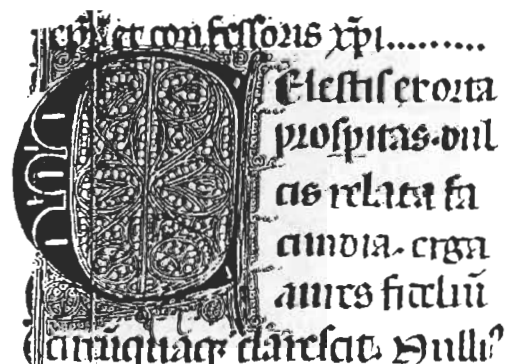 ep̄i et confessoris xp̄i.........
Elestis exorta
prosp̱itas. dul
cis relata fa
cundia. erga
aures fideliū
circūquaq; clarescit. Null